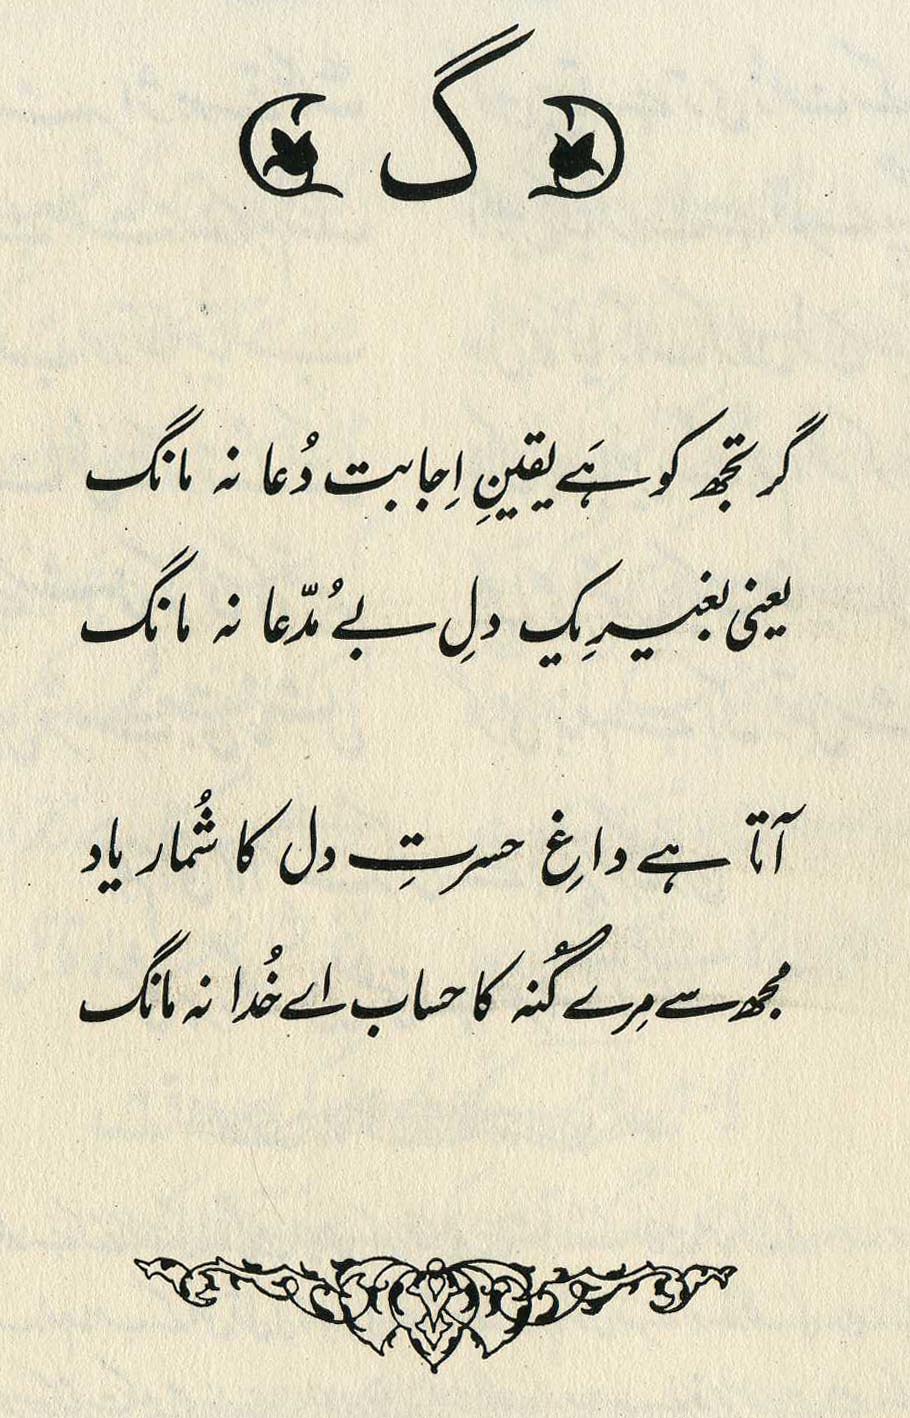 گ
گر تجھ کو ہَے یقینِ اِجابت دُعا نہ مانگ
یعنی بغیرِ یک دلِ بے مُدّعا نہ مانگ
آتا ہے داغِ حسرتِ دل کا شُمار یاد
مجھ سے مِرے گُنہ کا حساب اے خُدا نہ مانگ